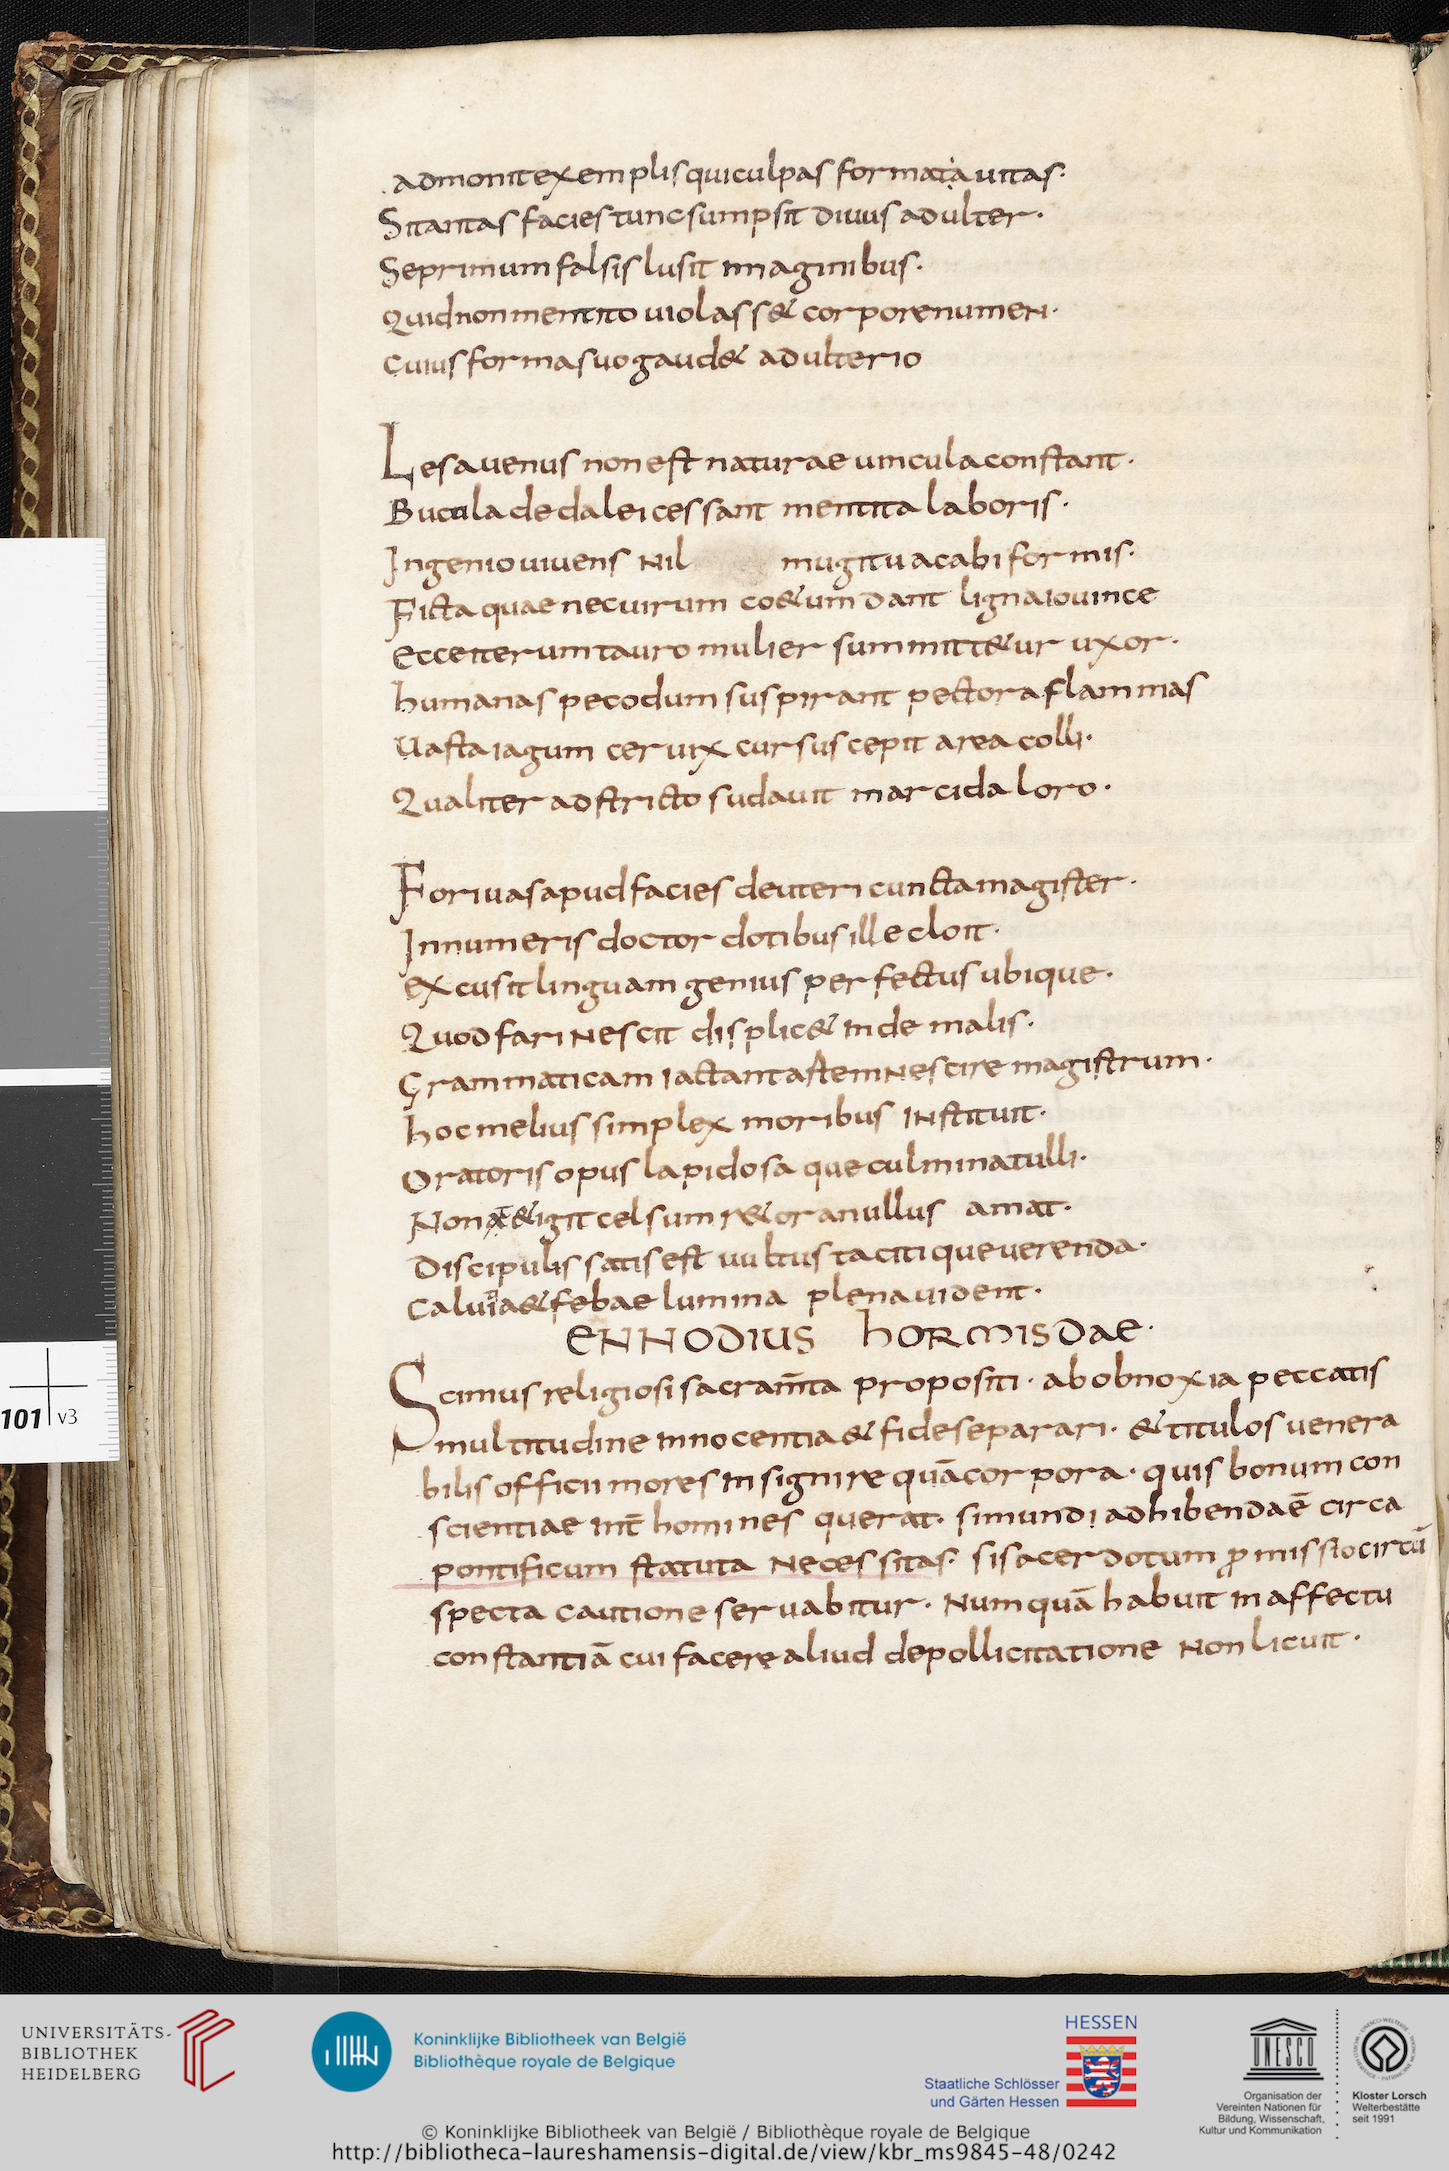 admonit exemplis qui culpas format a uitas.
Sit antas facies tunc sumpsit diuus adulter.
Se primum falsis lusit imaginibus.
Quid non mentito uiolass& corpore numen.
Cuius forma suo gaud& adulterio
Lesa uenus non est naturae uincula constant.
Bucula dedalei cessant mentita laboris.
Ingenio uiuens nil mugitu acabi formis.
Ficta quae nec uirum co&um dant ligna iouince
Ecce iterum tauro mulier summitt&ur uxor.
humanas pecodum suspirant pectora flammas
Uasta iagum ceruix cur suscepit area colli.
Qualiter adstricto sudauit marcida loro.
Foriuas apud facies deuteri cuncta magister.
Innumeris doctor dotibus ille cloit.
Excusit linguam genius perfectus ubique.
Quod fari nescit displic& inde malis.
Grammaticam iactant astem nescire magistrum.
hoc melius simplex moribus instituit.
Oratoris opus lapidosa que culmina tulli.
Non &igit celsum r&ora nullus amat.
Discipulis satis est uultus taciti que uerenda.
Caluia & febae lumina plena uident.
ENNODIUS HORMISDAE.
Scimus religiosi sacram̄ta propositi. ab obnoxia peccatis
multitudine innocentia & fide separari. & titulos uenera
bilis officii mores insignire quā corpora. quis bonum con
scientiae int̄ homines querat. si mundi adhibenda ē circa
pontificum statuta necessitas. si sacerdotum ꝓmissio circū
specta cautione seruabitur. Numquā habuit in affectu
constantiā cui facere aliud de pollicitatione non licuit.
101 v3
UNIVERSITÄTS-
BIBLIOTHEK
HEIDELBERG
Koninklijke Bibliotheek van België
Bibliothèque royale de Belgique
HESSEN
Staatliche Schlösser
und Gärten Hessen
UNESCO
Organisation der
Vereinten Nationen für
Bildung, Wissenschaft,
Kultur und Kommunikation
Kloster Lorsch
Welterbestätte
seit 1991
© Koninklijke Bibliotheek van België / Bibliothèque royale de Belgique
http://bibliotheca-laureshamensis-digital.de/view/kbr_ms9845-48/0242